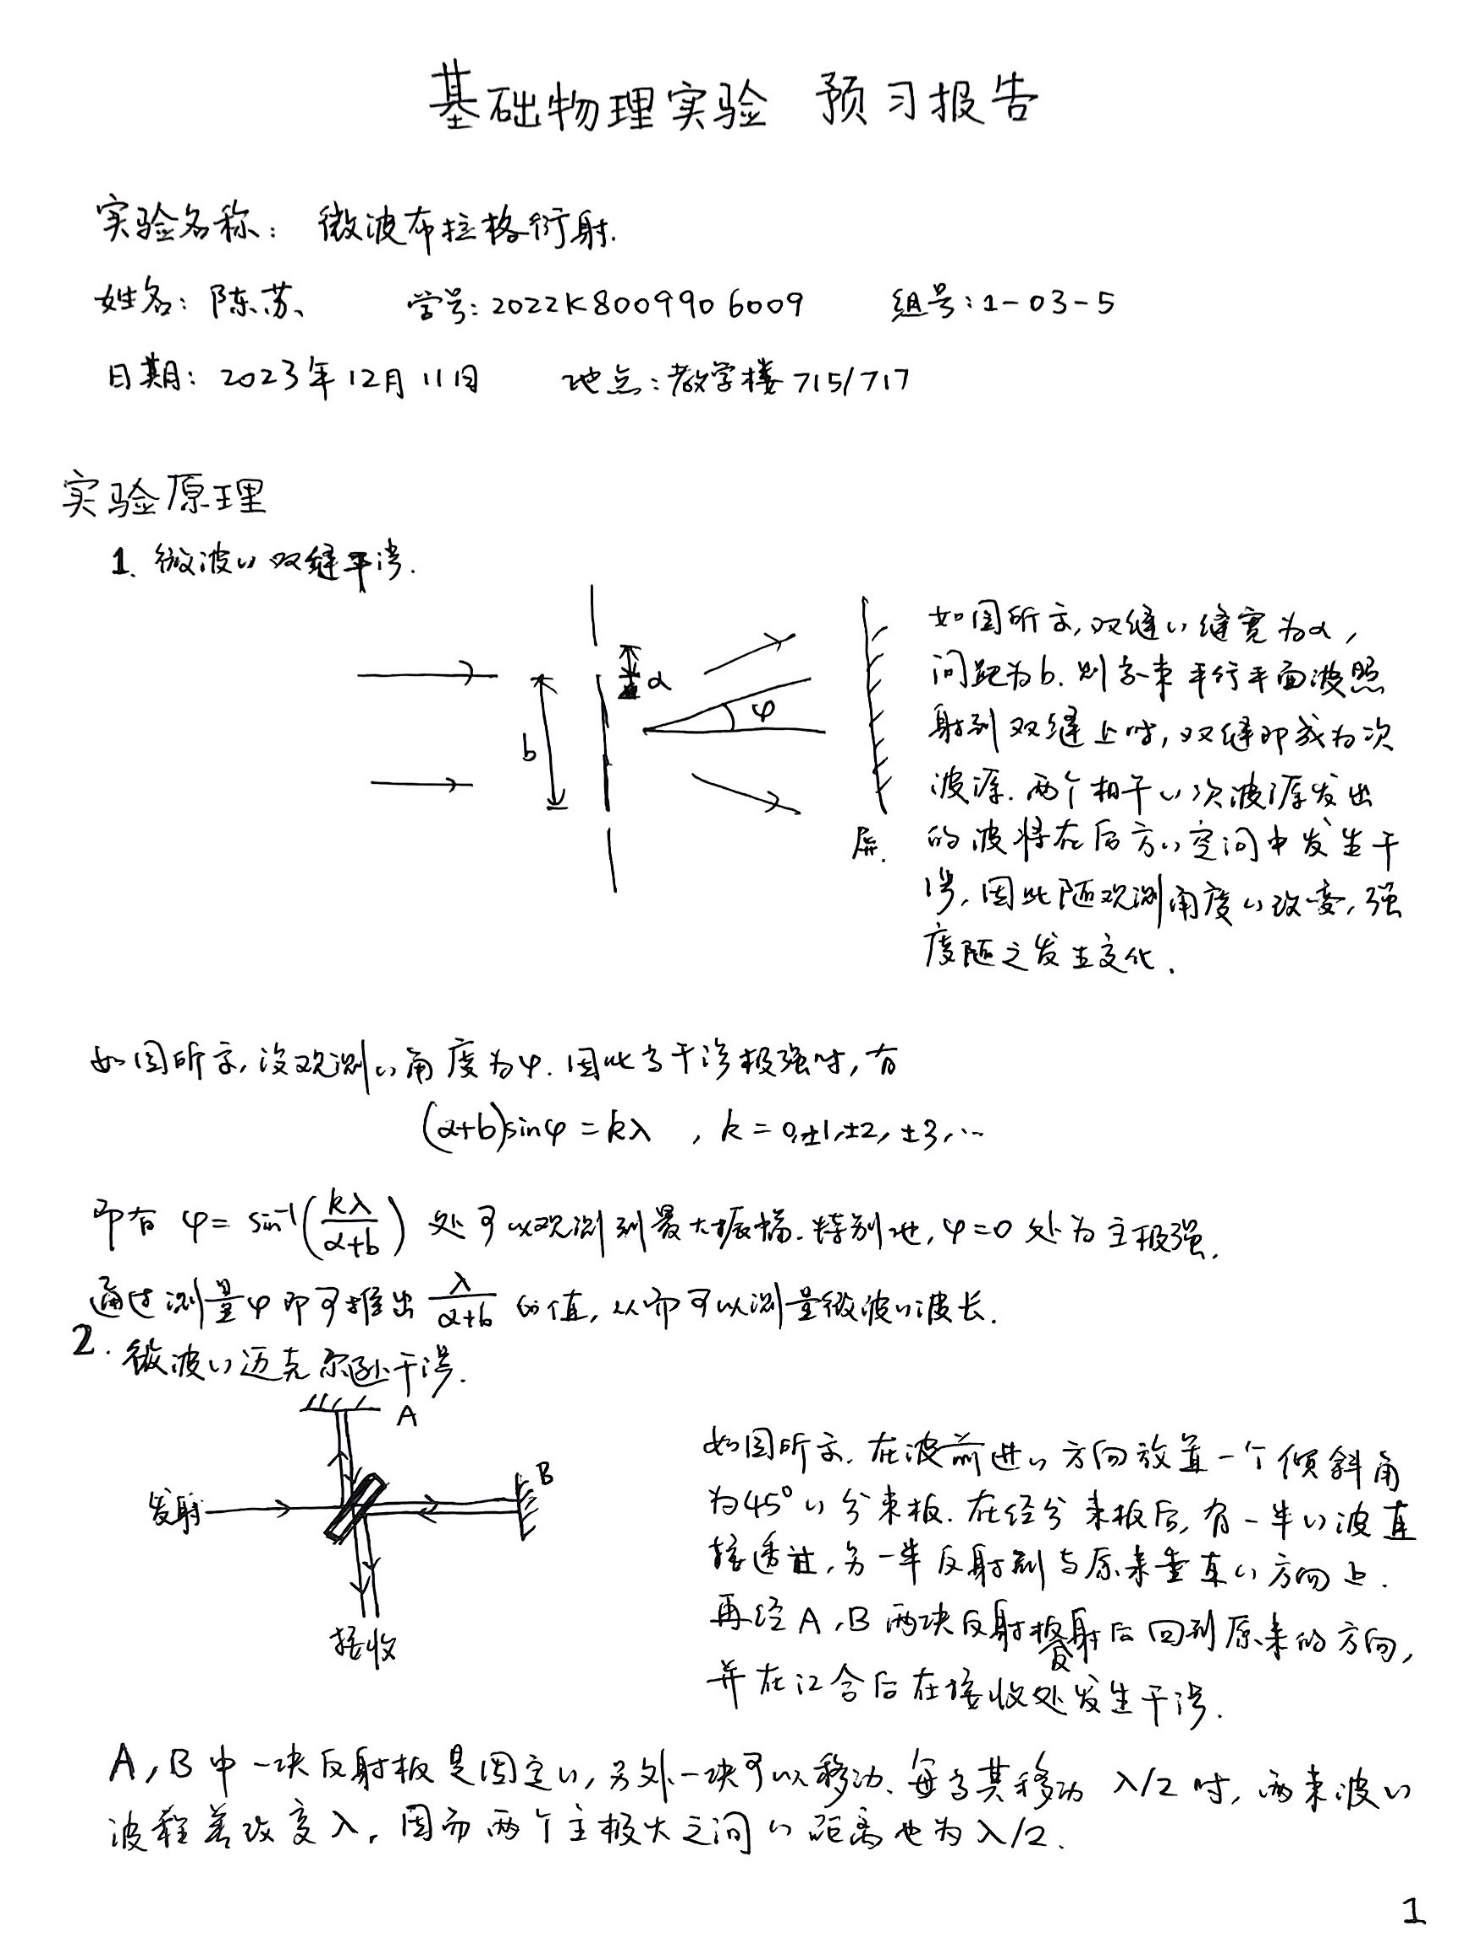 基础物理实验 预习报告
实验名称: 微波布拉格衍射.
姓名: 陈苏 学号: 2022K8009906009 组号: 1-03-5
日期: 2023年12月11日 地点: 教学楼 715/717
实验原理
1. 微波的双缝干涉.
α
φ
b
屏.
如图所示, 双缝的缝宽为α,
间距为b. 则当一束平行平面波照
射到双缝上时, 双缝即成为次
波源. 两个相干的次波源发出
的波将在后方的空间中发生干
涉, 因此随观测角度的改变, 强
度随之发生变化.
如图所示, 设观测的角度为φ. 因此当干涉极强时, 有
(α+b)sinφ = kλ , k = 0,±1,±2, ±3, …
即有 φ = sin⁻¹(kλ/(α+b)) 处可以观测到最大振幅. 特别地, φ=0 处为主极强.
通过测量φ即可推出 λ/(α+b) 的值, 从而可以测量微波的波长.
2. 微波的迈克尔逊干涉.
A
B
发射
接收
如图所示, 在波前进的方向放置一个倾斜角
为45°的分束板. 在经分束板后, 有一半的波直
接透过, 另一半反射到与原来垂直的方向上.
再经A, B两块反射板反射后回到原来的方向,
并在汇合后在接收处发生干涉.
A, B中一块反射板是固定的, 另外一块可以移动. 每当其移动 λ/2 时, 两束波的
波程差改变λ, 因而两个主极大之间的距离也为λ/2.
1